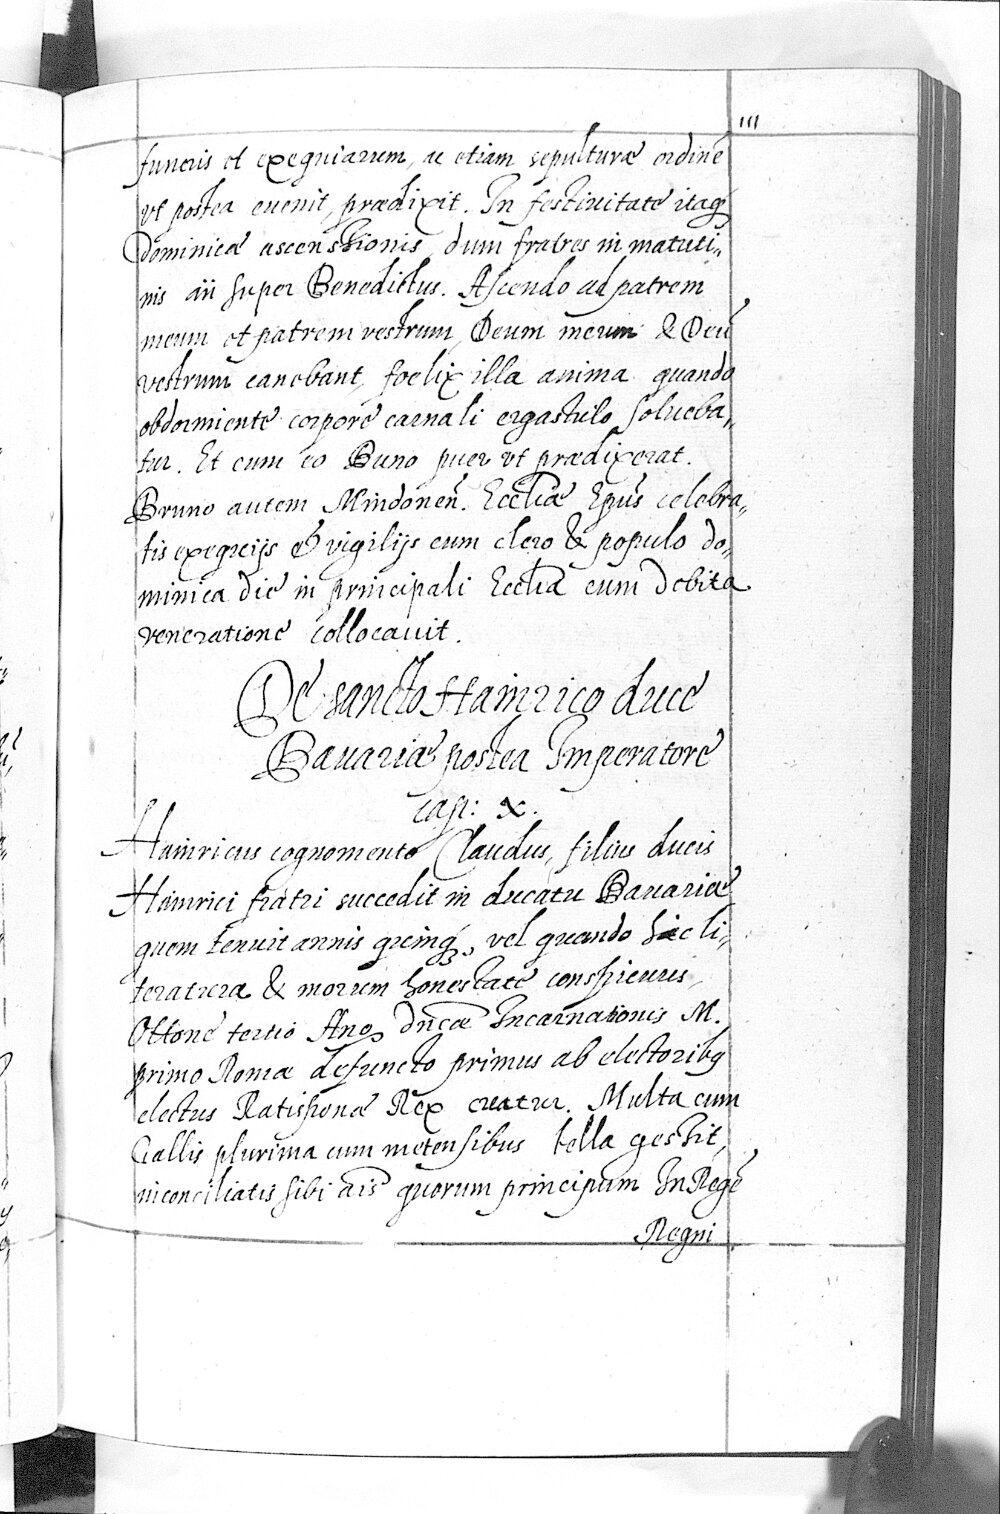 111
funeris et exequiarum, ac etiam sepulturæ ordinē
vt postea euenit, prædixit. In festiuitate itaq́
Dominicæ ascensionis, dum fratres in matuti„
nis añ super Benedictus. Ascendo ad patrem
meum et patrem vestrum, Deum meum & Deū
vestrum canebant, foelix illa anima quando
obdormiente corpore carnali ergastulo solueba„
tur. Et cum eo Buno puer vt prædixerat.
Bruno autem Mindoneñ. Eccliæ Epūs celebra„
tis exequijs & vigilijs cum clero & populo do„
minica die in principali Ecclia cum debita
veneratione collocauit.
De sancto Hainrico duce
Bauariæ postea Imperatore
cap: X.
Hainricus cognomento Claudus, filius ducis
Hainrici fratri succedit in ducatu Bauariæ
quem tenuit annis quinq́, vel quando hic li„
teratura & morum honestate conspicuus,
Ottone tertio Ano Dn̄cæ Incarnationis M.
primo Romæ defuncto primus ab electoribq
electus Ratisponæ Rex creatur. Multa cum
Gallis plurima cum metensibus bella gessit,
inconciliatis sibi ais quorum principum In Regē
Regni